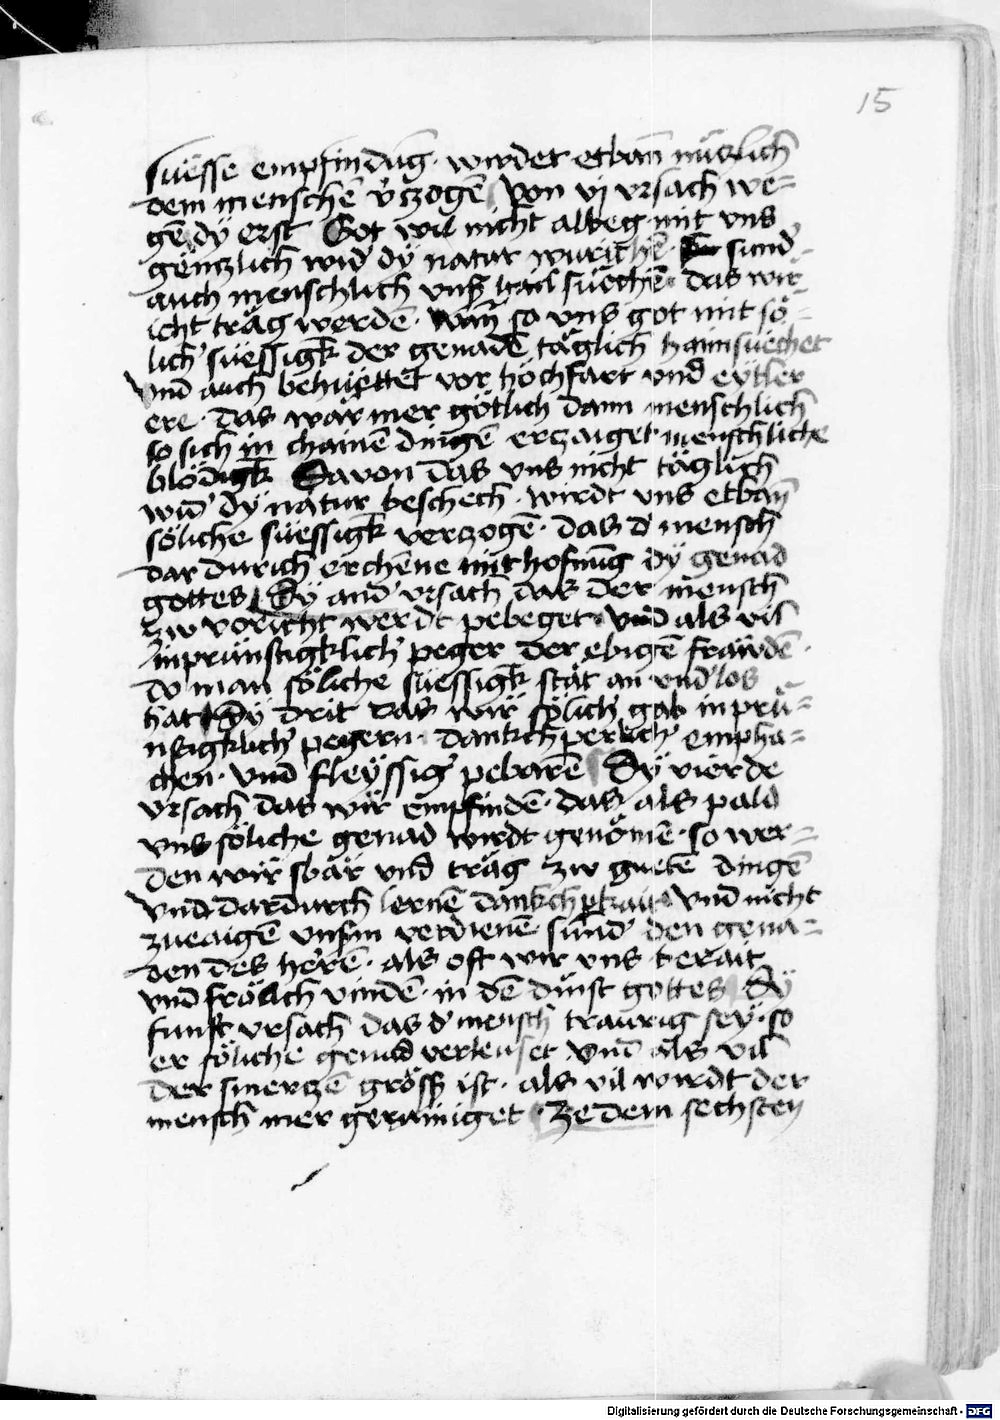 15
süesse empfindūg · wirdet etban̄ nüczlich
dem menschē v̓czogē Von vj vrsach we=
gē dÿ erst Got wil nicht albeg mit vns
genczlich wid̓ dÿ natur wurichē sund̓
auch menschlich vnß hail süechē · das wir
icht träg werdē · Wan̄ so vns got mit sö=
lich̓ süessigk̄ der genadē täglich haimsuechet
Vnd auch behüettet vor höchfart vnd eÿtler
ere · das wär mer götlich dann menschlich
so sich in chainē dingē erzaiget menschliche
blödigk̄ Davon das vns nicht täglich
wid̓ dÿ natur beschech · wirdt vns etban̄
söliche süessigk̄ verzogē · das d̓ mensch
dar durich erchēne mit hofnūg dÿ genad
gottes Dÿ and̓ vrsach das der mensch
zw voricht werdt pebeget · Vnd als vil
inprünstigklich̓ peger der ebigē fräwdē ·
do man söliche süessigk̄ stät an vnd̓los
hat Dÿ drit das wir sölich gab inprü=
nstigklich̓ pegern · danckchperlich̓ empha=
chen · Vnd fleÿssig̓ pebarē Dÿ vierde
vrsach das wir empfindē · das als pald
vns söliche genad wirdt genömē · so wer=
den wir sbär vnd träg zw guetē dingē
Vnd dardurch lernē danckchp̱rkait Vnd nicht
zueaigē vnsm verdienē sund̓ den gena=
den des herē · als oft wir vns berait
vnd frölich vindē · in dē dinst gottes Dÿ
funft vrsach das d̓ mensch traurig seÿ · so
er söliche genad verleuset Vnd als vil
der smerczē grösß ist · als vil wirdt der
mensch mer gerainiget · Ze dem sechsten
Digitalisierung gefördert durch die Deutsche Forschungsgemeinschaft - DFG